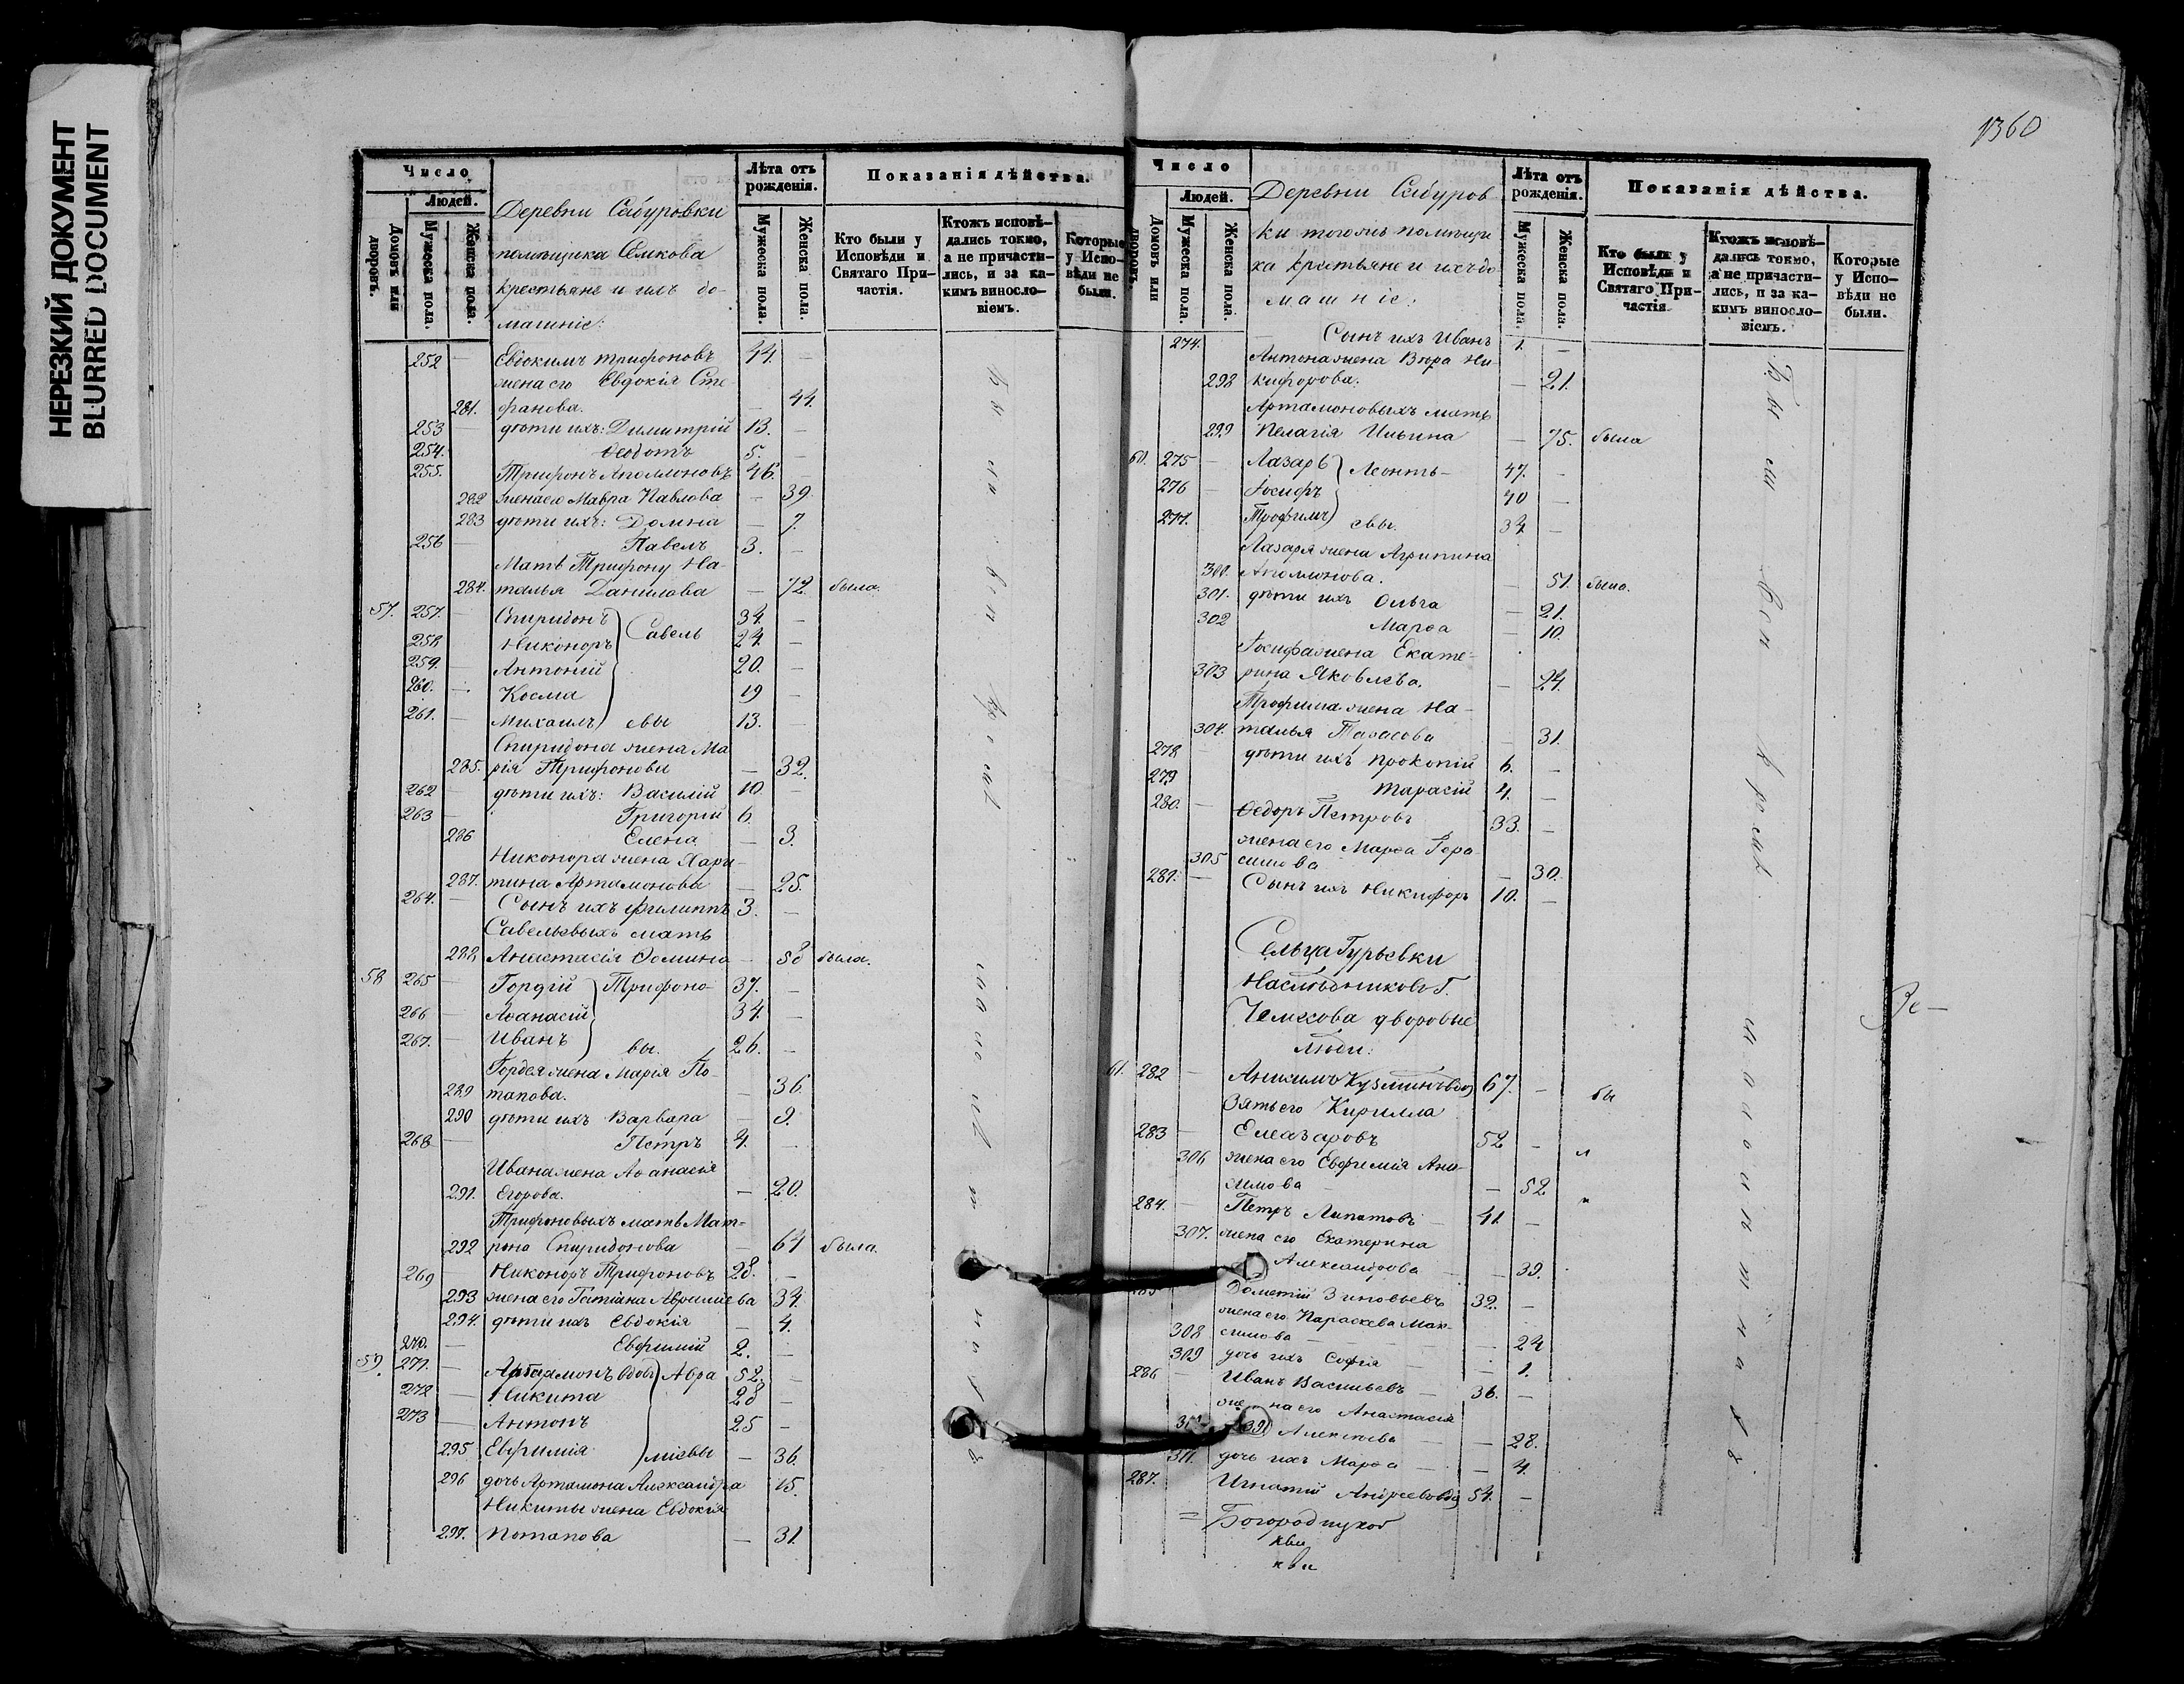 НЕРЕЗКИЙ ДОКУМЕНТ
BLURRED DOCUMENT
Число
Людей.
Домовъ или дворовъ.
Мужеска пола.
Женска пола.
Деревни Сабуровки
помѣщика
крестьяне и ихъ до-
машніе:
Лѣта отъ рожденія.
Мужеска пола.
Женска пола.
Показанія дѣйства.
Кто были у Исповѣди и Святаго При-частія.
Ктожъ исповѣ-дались токмо, а не причасти-лись, и за ка-кимъ винословіемъ.
Которые у Испо-вѣди не были.
252 — Евдокимъ Трифоновъ 44. —
жена его Евдокія Сте
281. фанова. — 44.
253 — дѣти ихъ: Димитрій 13. —
254. Ѳеодотъ 5. —
255. Трифонъ Аполлоновъ 46. —
282 жена его Мавра Павлова — 39.
283 дѣти ихъ: Домна — 7.
256 — Павелъ 3. —
Мать Трифону На-
284. талья Данилова — 72. была.
57. 257. Спиридонъ } Савель 34. —
258 Никоноръ 24. —
259. — Антоній 20. —
260. — Косма 19 —
261. — Михаилъ } евы 13. —
Спиридона жена Ма
285. рія Трифонова — 32.
262 — дѣти ихъ: Василій 10. —
263 — Григорій 6.
286 Елена — 3.
Никонора жена Хари-
287. тина Артамонова — 25.
264. — Сынъ ихъ Филиппъ 3. —
Савельевыхъ мать
288 Анастасія Ѳомина — 58 была.
58 265 — Гордій } Трифоно- 37. —
266 — Аѳанасій 34. —
267. — Иванъ } вы. 26. —
Гордея жена Марѳа По-
289 тапова. — 36.
290 дѣти ихъ Варвара — 9.
268. — Петръ 4. —
Ивана жена Аѳанасія
291. Егорова. — 20.
Трифоновыхъ мать Мат-
292 рона Спиридонова — 64 была.
269 — Никоноръ Трифоновъ 28. —
293 жена его Татіана Аврамиева 34.
294. дѣти ихъ Евдокія — 4.
270. — Евфимій 2. —
59. 271. — Артамонъ вдовъ } Авра 52. —
272 — Никита 28 —
273 — Антонъ 25 —
295. Евфимія } міевы — 36.
296 дочь Артамона Александра 15.
Никиты жена Евдокія
297. Потапова — 31.
1360
Число
Людей.
Домовъ или дворовъ.
Мужеска пола.
Женска пола.
Деревни Сабуров
ки тогожъ помѣщи
ка крестьяне и ихъ до
машніе:
Лѣта отъ рожденія.
Мужеска пола.
Женска пола.
Показанія дѣйства.
Кто были у Исповѣди и Святаго При-частія.
Ктожъ исповѣ-дались токмо, а не причасти-лись, и за ка-кимъ винословіемъ.
Которые у Испо-вѣди не были.
274. Сынъ ихъ Иванъ 1. —
Антона жена Вѣра Ни-
298 кифорова. — 21.
Артамоновыхъ мать
299 Пелагія Ильина — 75. была
60. 275 — Лазарь } Леонть- 47. —
276 — Іосифъ 40 —
277. Трофимъ } евы. 34 —
Лазаря жена Агрипина
300. Аполлонова. — 51. была.
301. дѣти ихъ Ольга — 21.
302 Марѳа — 10.
Іосифа жена Екате-
303 рина Яковлева. — 24.
Трофима жена На-
304. талья Тарасова — 31.
278 — дѣти ихъ Прокопій 6. —
279 Тарасій 4. —
280. — Ѳедоръ Петровъ 33. —
жена его Марѳа Гера-
305 симова — 30.
281. — Сынъ ихъ Никифоръ 10. —
Сельца Гурьевки
Наслѣдниковъ Г.
дворовые
люди:
61. 282 — Анисимъ Кузминъ вдов 67. — бы
Зять его Кирилла
283 — Елеазаровъ 52 —
306 жена его Евфимія Ани-
симова — 52
284. — Петръ Липатовъ — 41. —
307. жена его Екатерина
Александрова — 39.
285 Дометій Зиновьевъ 32. —
жена его Параскева Мак-
308 симова — 24
309 дочь ихъ Софія — 1.
286 — Иванъ Васильевъ — 36. —
жена его Анастасія
Алексѣева — 28.
311. дочь ихъ Марѳа — 4.
287. Игнатій Андреевъ вдов 54. —